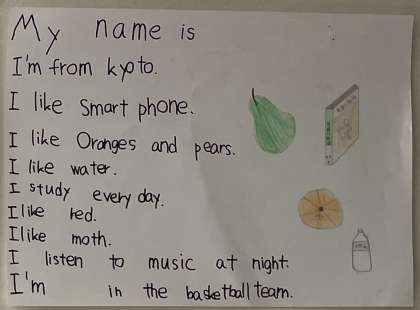 My name is
I'm from kyoto.
I like Smart phone.
I like Oranges and pears.
I like water.
I study every day.
I like red.
I like moth.
I listen to music at night.
I'm in the basketball team.